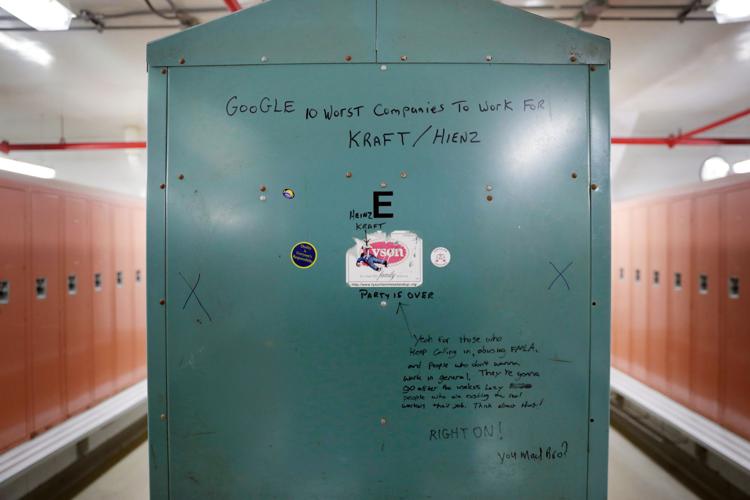 GOOGLE 10 WORST Companies To Work FOR
KRAFT/HIENZ
E
HEINZ
KRAFT
Tyson
family
PARTY IS OVER
Yeah for those who
Keep Calling in, abusing FMLA,
and people who don't wanna
work in general. They're gonna
go after the useless Lazy
people who are costing the real
workers their job. Think about that!
RIGHT ON!
you mad Bro?